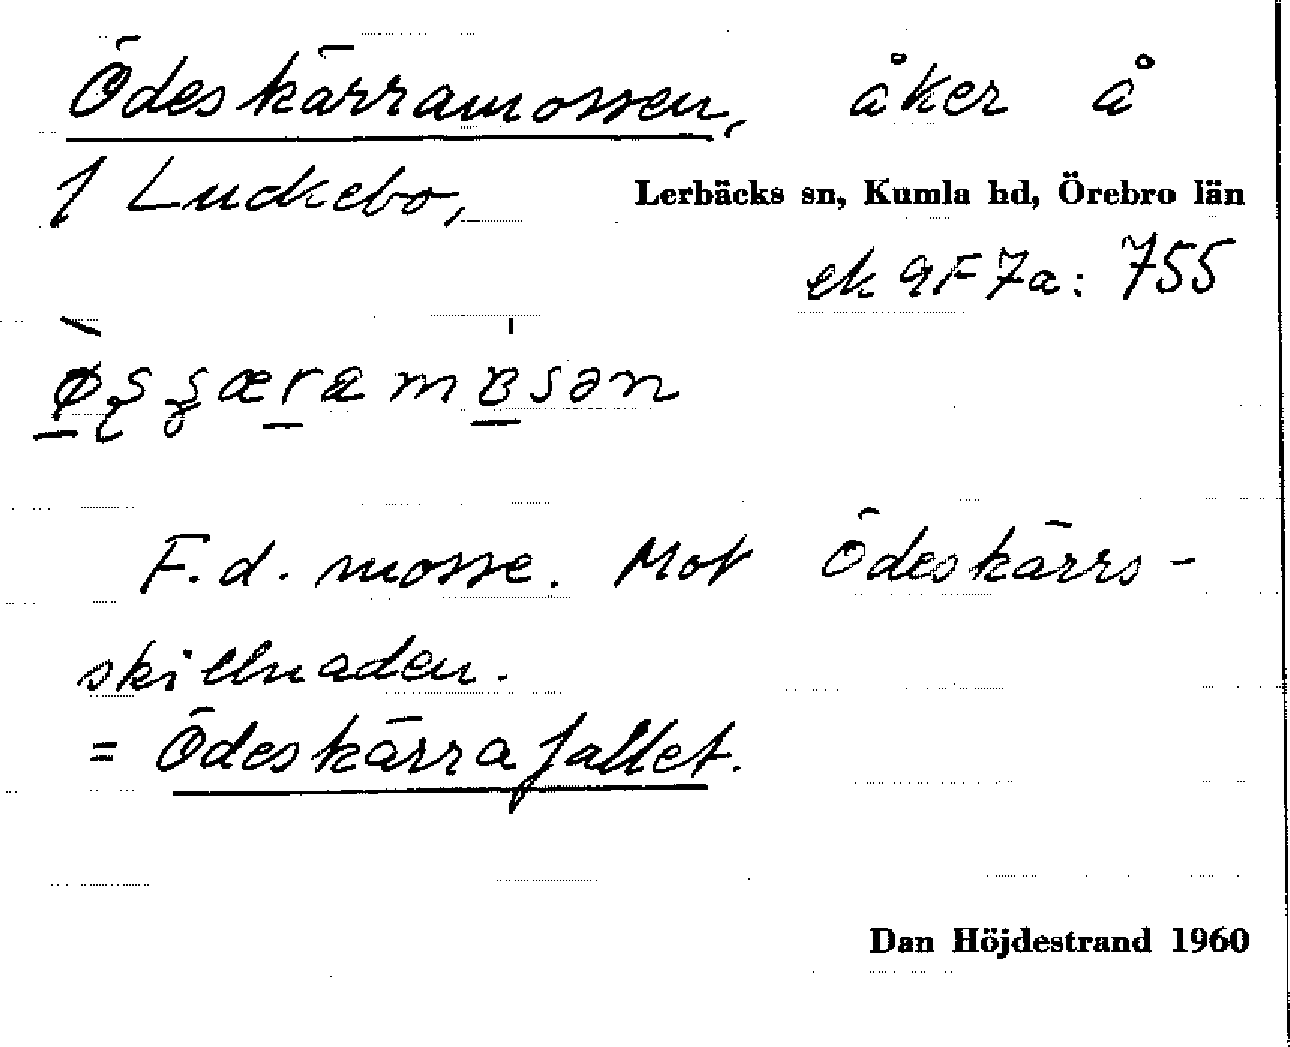 Ödeskärramossen, åker å
1 Luckebo, Lerbäcks sn, Kumla hd, Örebro län
ek 9F7a: 755
F.d. mosse. Mot Ödeskärrs-
skillnaden.
= Ödeskärrafallet.
Dan Höjdestrand 1960